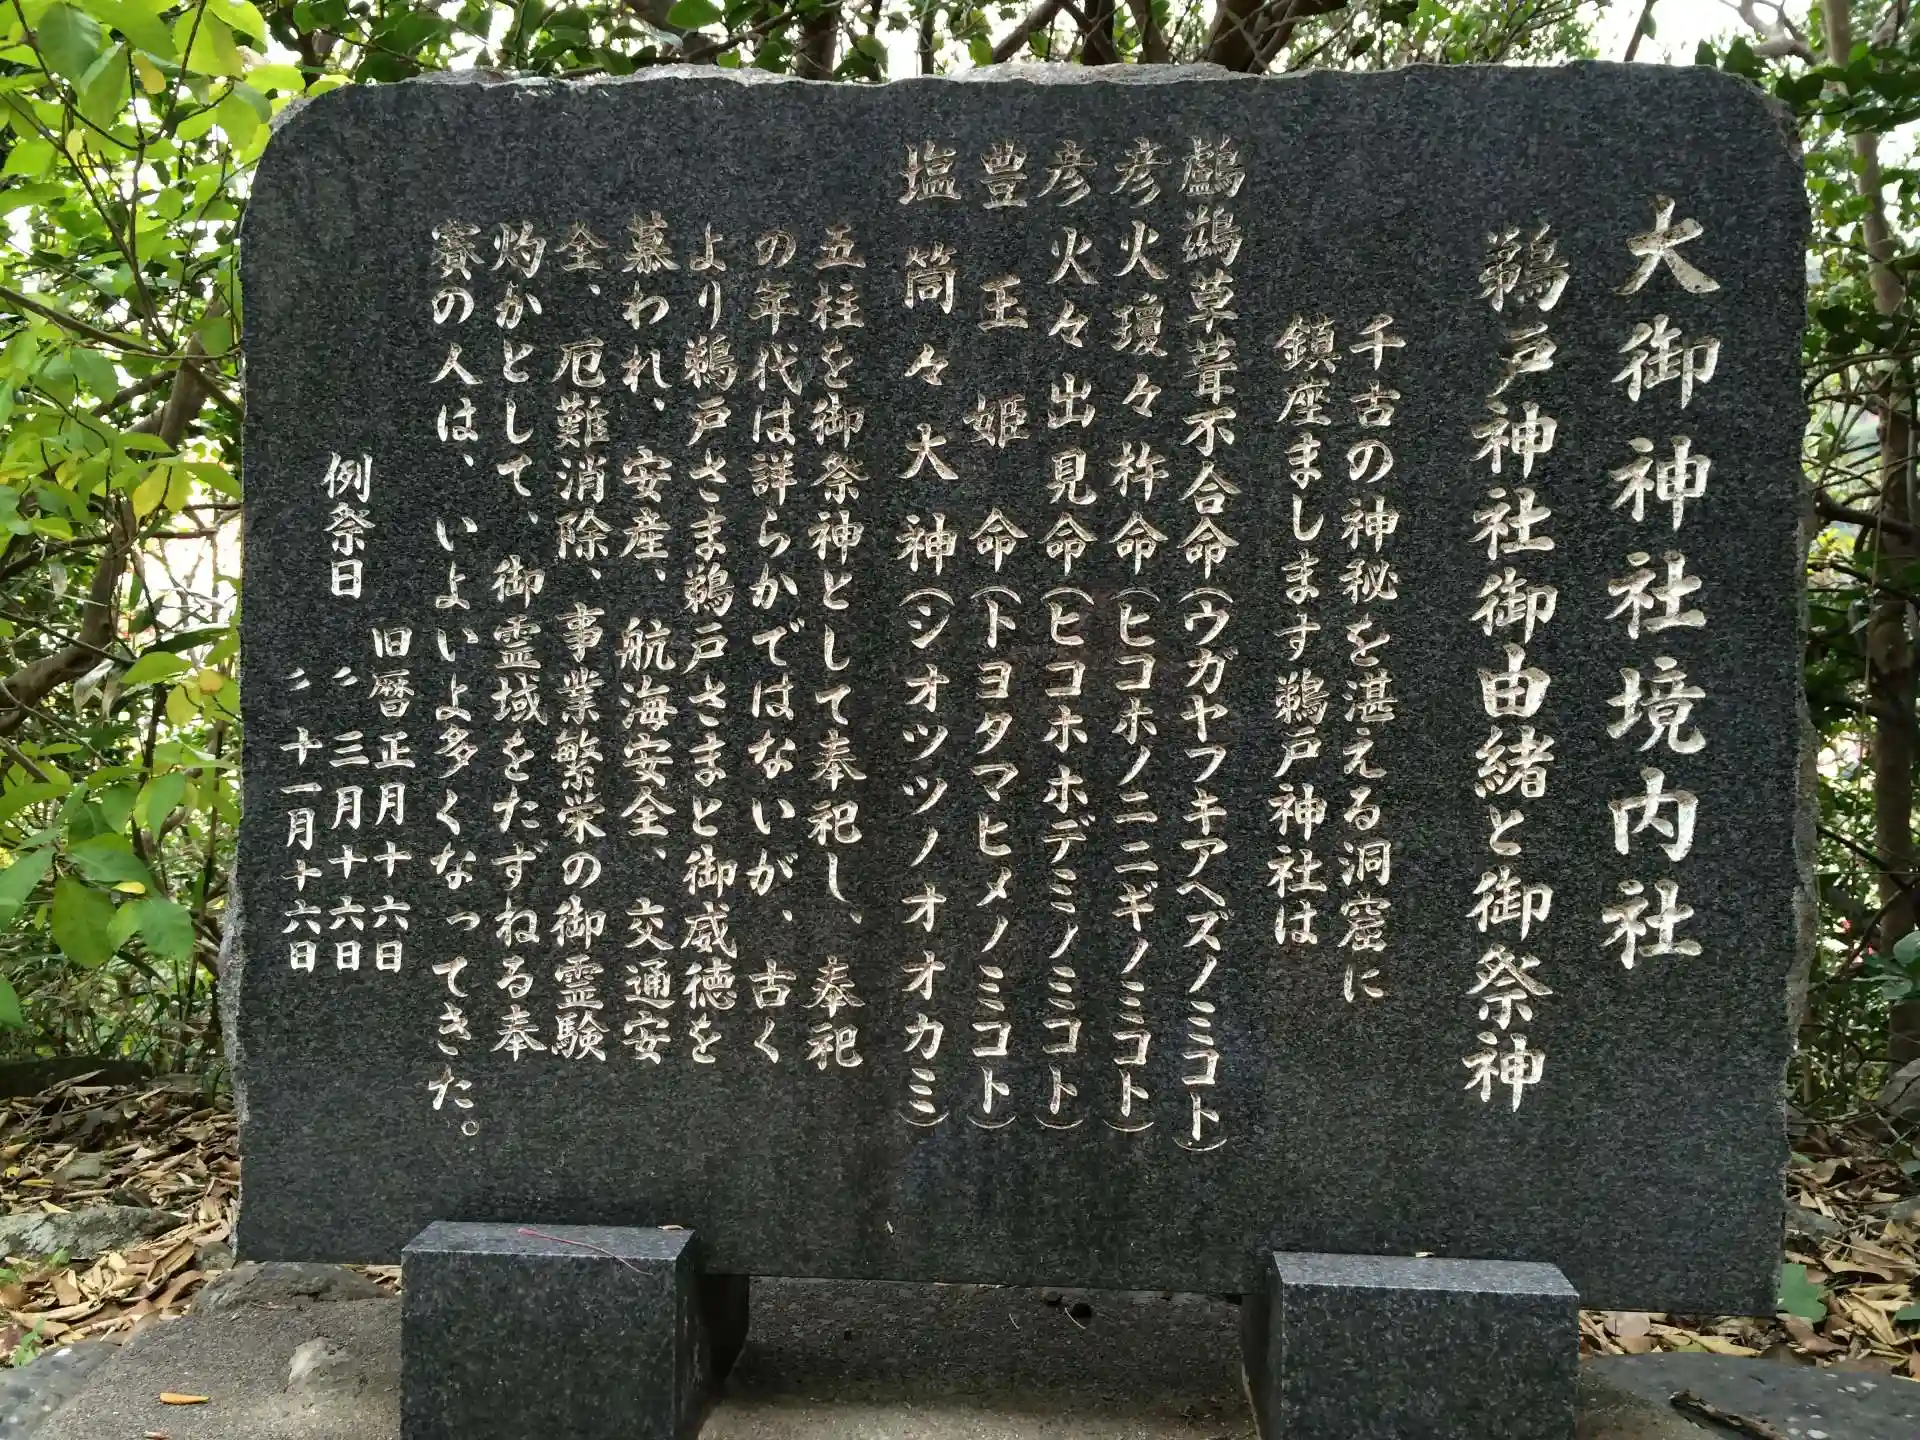 大御神社境内社
鵜戸神社御由緒と御祭神
千古の神秘を湛える洞窟に
鎮座まします鵜戸神社は
鸕鷀草葺不合命(ウガヤフキアヘズノミコト)
彦火瓊々杵命(ヒコホノニニギノミコト)
彦火々出見命(ヒコホホデミノミコト)
豊玉姫命(トヨタマヒメノミコト)
塩筒々大神(シオツツノオオカミ)
五柱を御祭神として奉祀し、奉祀
の年代は詳らかではないが、古く
より鵜戸さま鵜戸さまと御威徳を
慕われ、安産、航海安全、交通安
全、厄難消除、事業繁栄の御霊験
灼かとして、御霊域をたずねる奉
賽の人は、いよいよ多くなってきた。
旧暦正月十六日
例祭日 〃 三月十六日
〃 十一月十六日